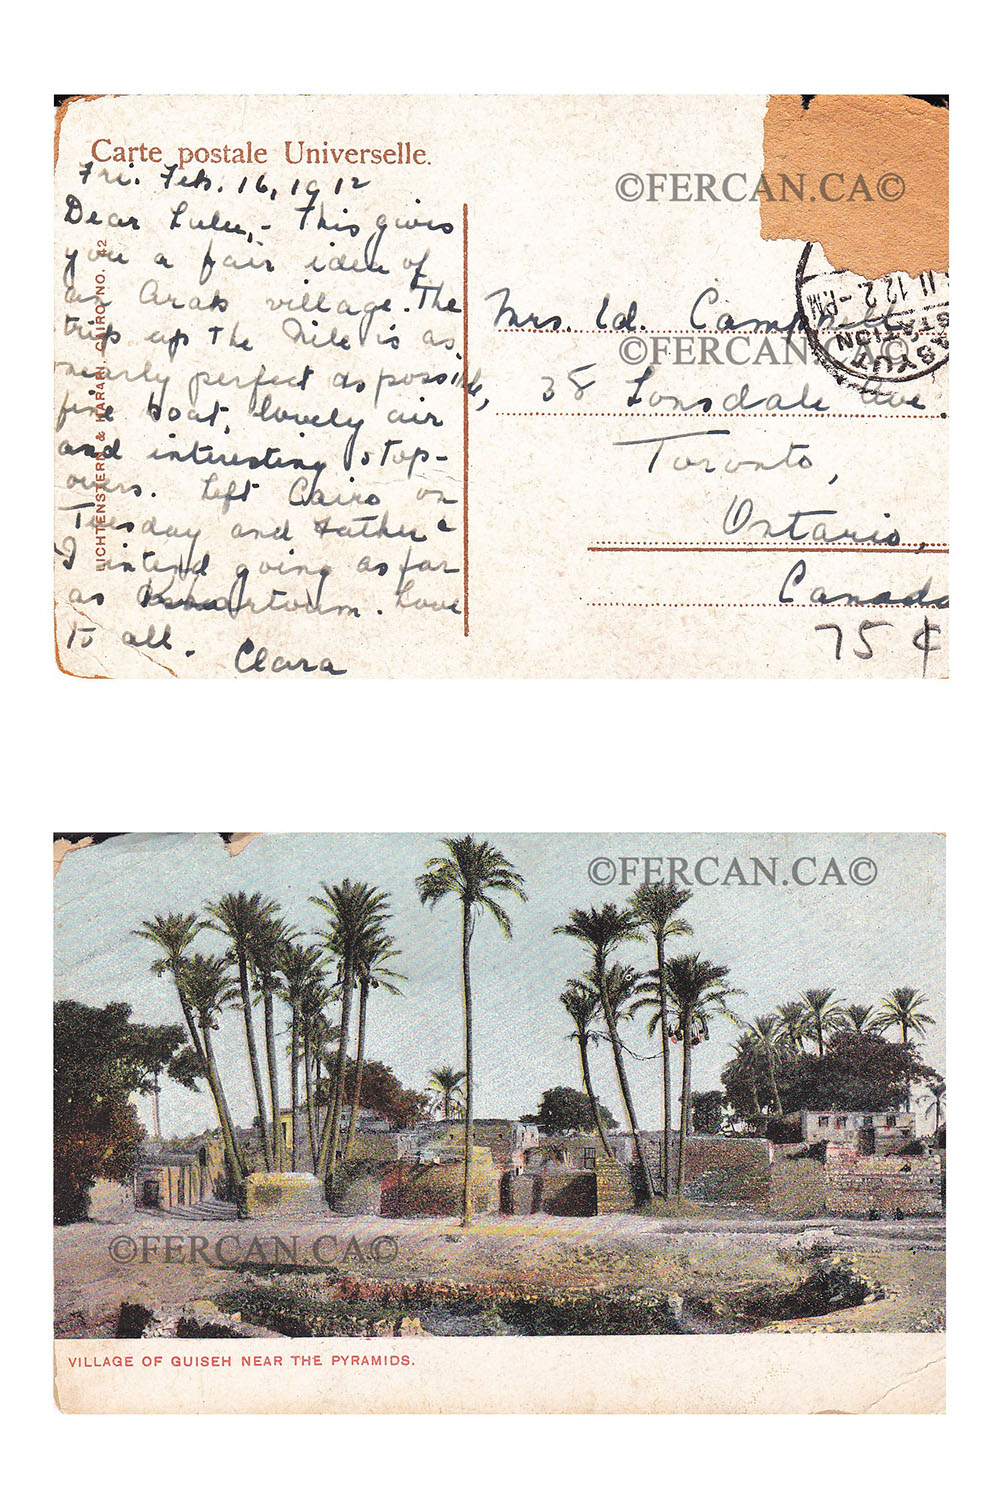 Carte postale Universelle.
©FERCAN.CA©
Fri. Feb. 16, 1912
Dear Lulu, - This gives
you a fair idea of
an Arab village. The
trip up the Nile is as
nearly perfect as possible,
fine boat, lovely air
and interesting stop-
overs. Left Cairo on
Tuesday and Father &
I intend going as far
as Khartoum. Love
to all.
Clara
LICHTENSTERN & HARARI, CAIRO NO. 42
Mrs. Campbell
©FERCAN.CA©
38 Lonsdale Ave.
Toronto,
Ontario,
Canada
75 ¢
ASYUT
STATION
II 12 2 - PM
©FERCAN.CA©
©FERCAN.CA©
VILLAGE OF GUISEH NEAR THE PYRAMIDS.